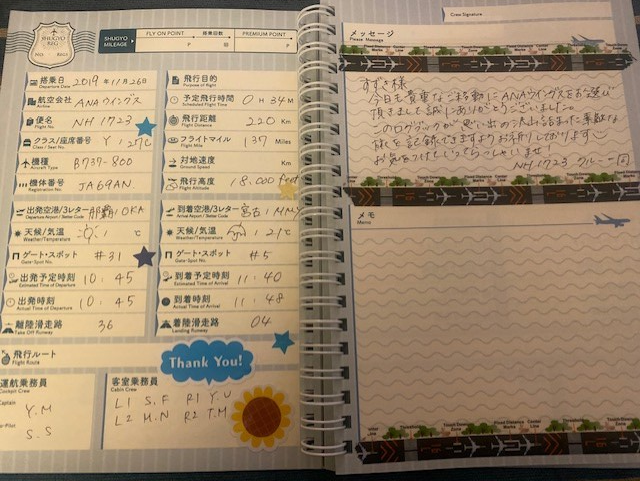 SHUGYO REG
SHUGYO MILEAGE
FLY ON POINT
搭乗回数
PREMIUM POINT
P
回
P
搭乗日 2019年11月26日
Departure Date
航空会社 ANAウイングス
Airline
便名 NH1723
Flight No.
クラス/座席番号 Y
Class / Seat No.
機種 B737-800
Aircraft Type
機体番号 JA69AN
Registration No.
飛行目的
Purpose of flight
予定飛行時間 0H34M
Scheduled Flight Time
飛行距離 220 Km
Flight Distance
フライトマイル 137 Miles
Flight Mile
対地速度 Km
Ground Speed
飛行高度 18,000 feet
Flight Altitude
出発空港/3レター 那覇/OKA
Departure Airport / 3letter Code
天候/気温 ℃
Weather/Temperature
ゲート・スポット #31
Gate・Spot No.
出発予定時刻 10:45
Estimated Time of Departure
出発時刻 10:45
Actual Time of Departure
離陸滑走路 36
Take Off Runway
到着空港/3レター 宮古/MMY
天候/気温 21℃
Weather/Temperature
ゲート・スポット #5
Gate・Spot No.
到着予定時刻 11:40
Estimated Time of Arrival
到着時刻 11:48
Actual Time of Arrival
着陸滑走路 04
Landing Runway
飛行ルート
Flight Route
Thank You!
運航乗務員
Cockpit Crew
Captain
Y.M
Pilot
S.S
客室乗務員
Cabin Crew
L1 S.F R1 Y.U
L2 M.N R2 T.M
Crew Signature
メッセージ
Please Message
すずき様
今日も貴重なご移動にANAウイングスをお選び
頂きまして誠にありがとうございました。
このログブックが思い出の沢山詰まった素敵な
旅を記録できますようお祈りしております
お気をつけていってらっしゃいませ!
NH1723 クルー一同
メモ
Memo